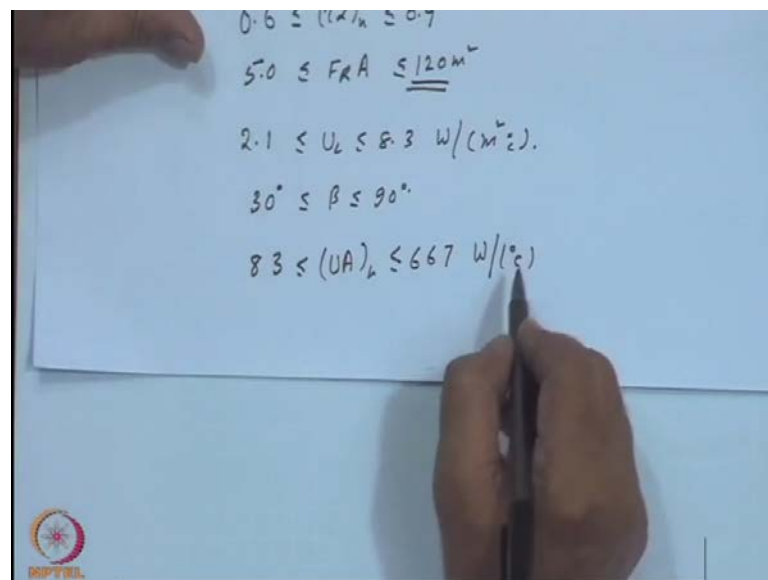 0.6 ≤ (τα)ₙ ≤ 0.9
5.0 ≤ FRA ≤ 120 m²
2.1 ≤ UL ≤ 8.3 W/(m²°C).
30° ≤ β ≤ 90°.
83 ≤ (UA)ₕ ≤ 667 W/(°C)
NPTEL